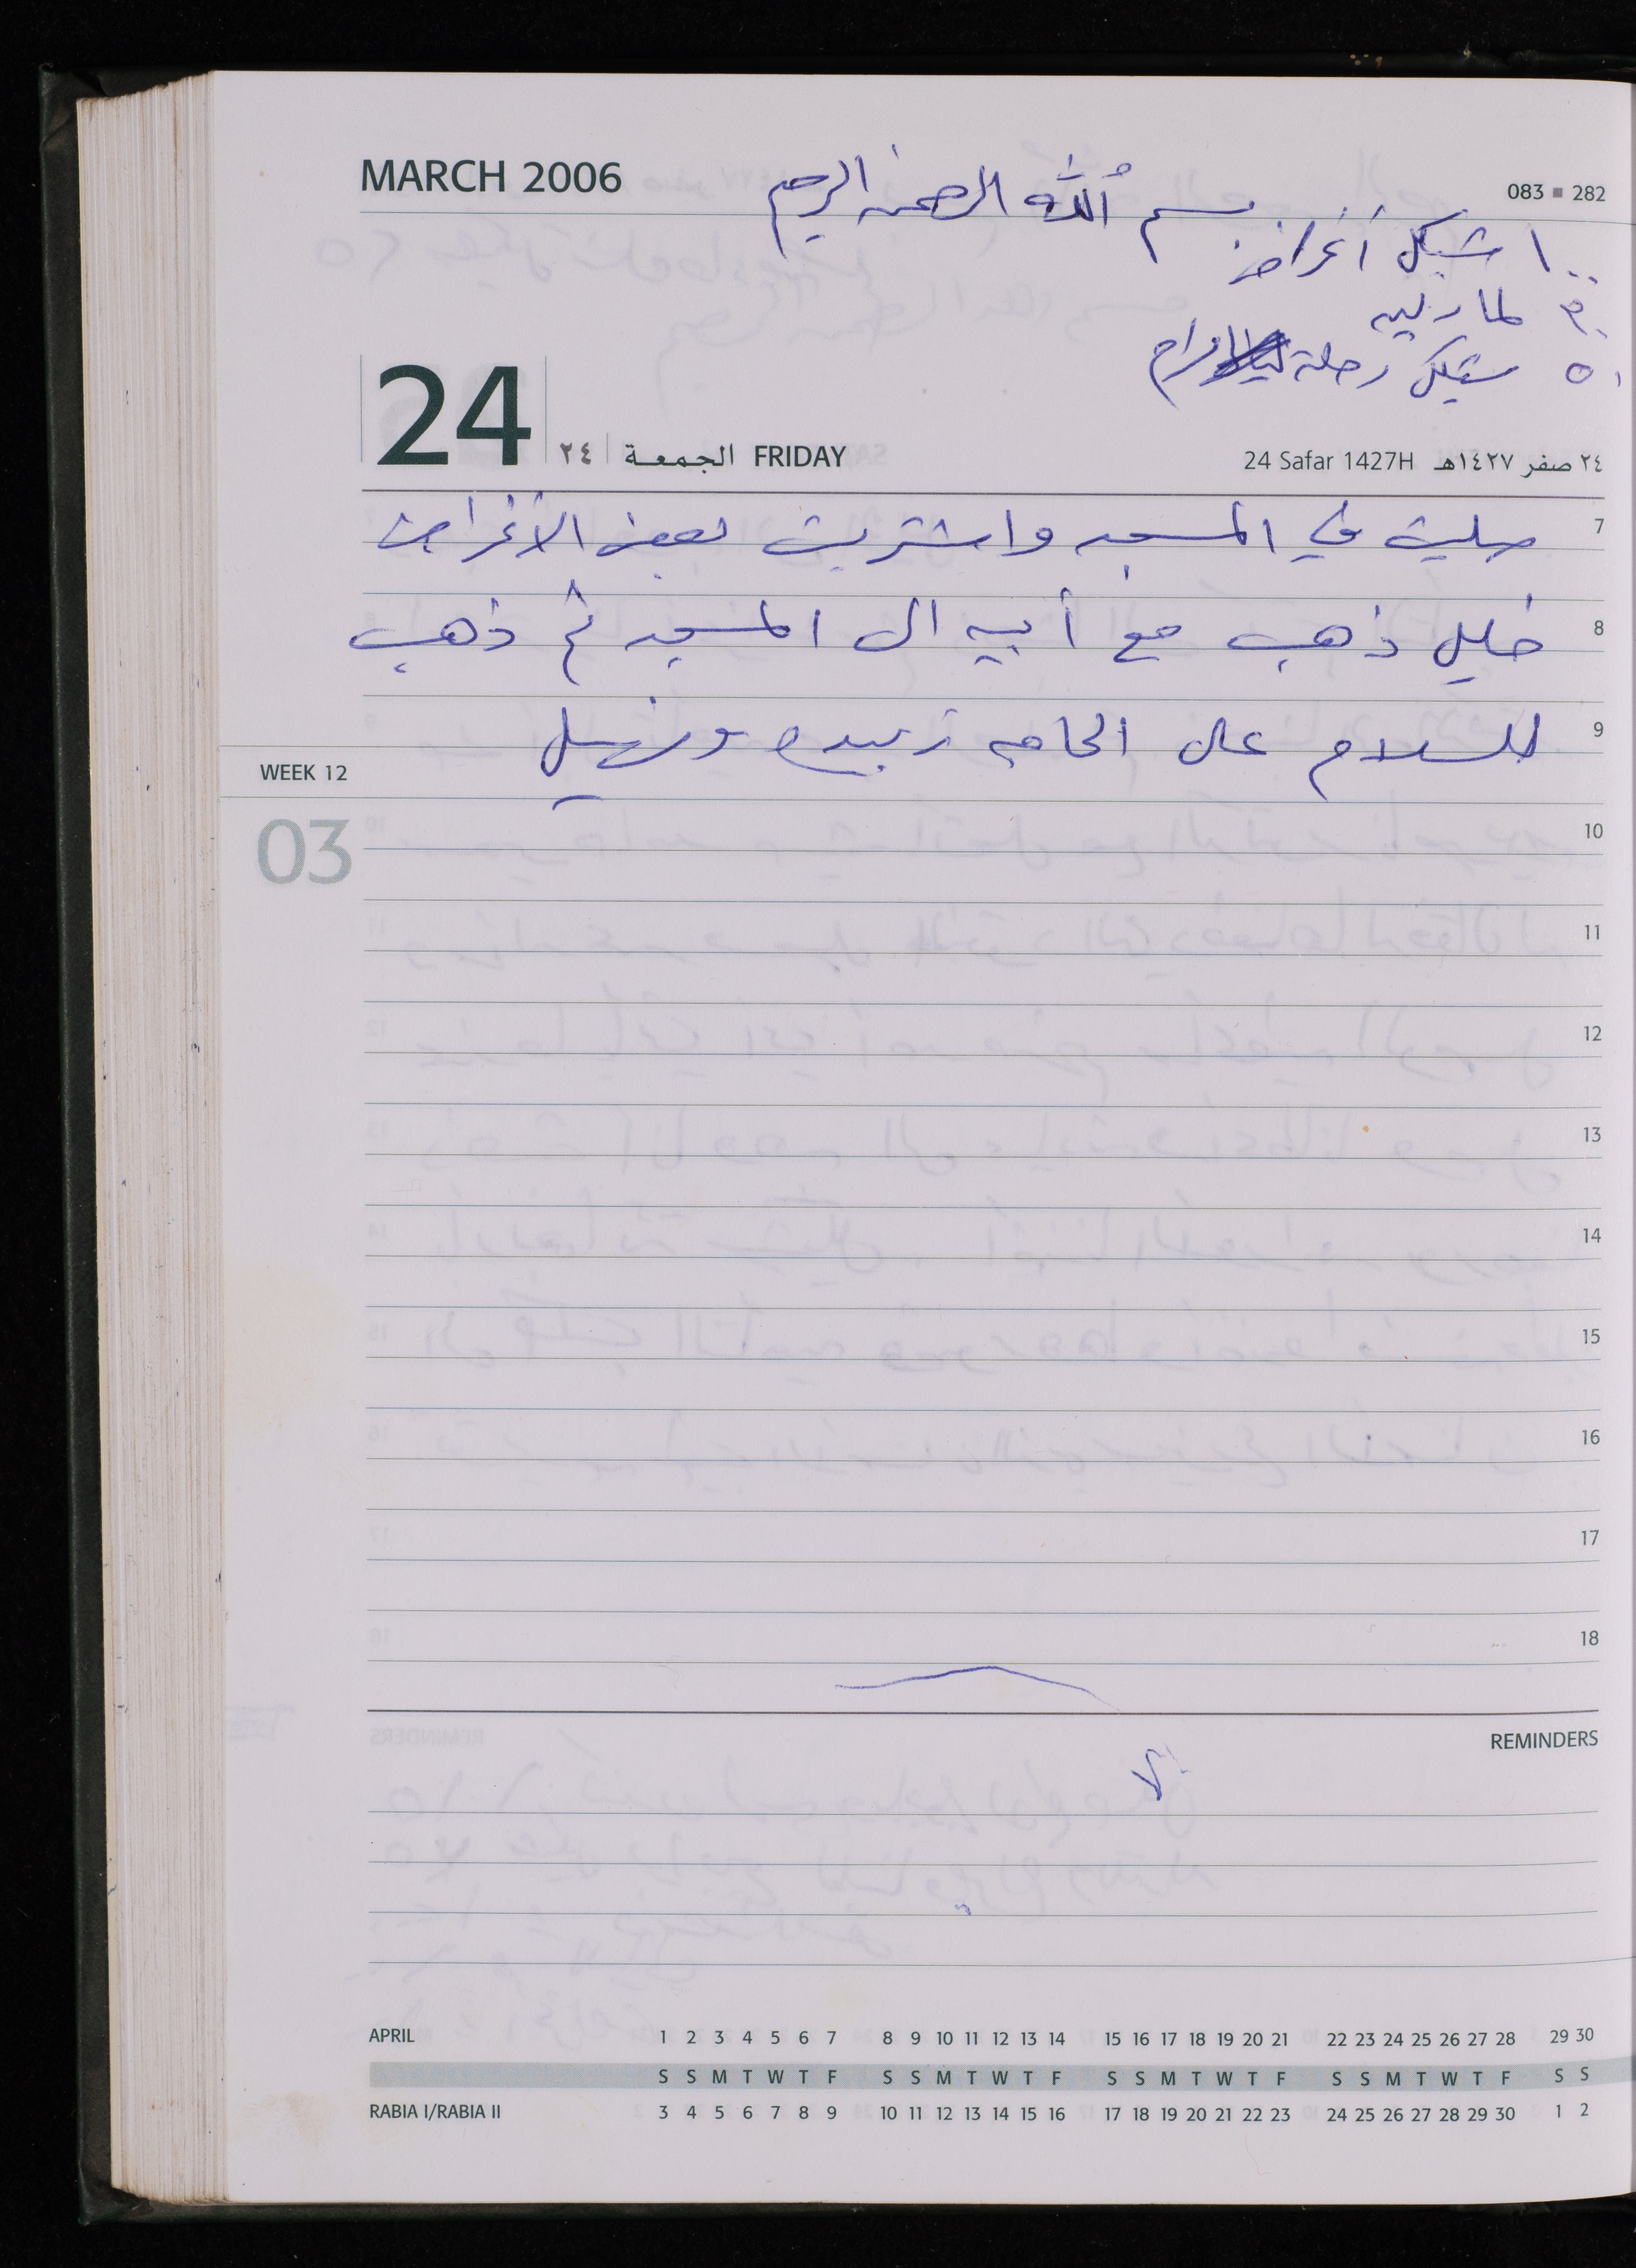 MARCH 2006
بسم الله الرحمن الرحيم
083 ▪ 282
١٠٠ شيكل أغراض
لماريه
٥٠ شيكل رحلة مرام
24
٢٤ الجمعة FRIDAY
24 Safar 1427H ٢٤ صفر ١٤٢٧هـ
7 صليت في المسجد واشتريت بعض الأغراض
8 خليل ذهب مع أبيه الى المسجد ثم ذهب
9 للسلام على الحاجه زبيده
WEEK 12
03
10
11
12
13
14
15
16
17
18
REMINDERS
APRIL 1 2 3 4 5 6 7 8 9 10 11 12 13 14 15 16 17 18 19 20 21 22 23 24 25 26 27 28 29 30
S S M T W T F S S M T W T F S S M T W T F S S M T W T F S S
RABIA I/RABIA II 3 4 5 6 7 8 9 10 11 12 13 14 15 16 17 18 19 20 21 22 23 24 25 26 27 28 29 30 1 2